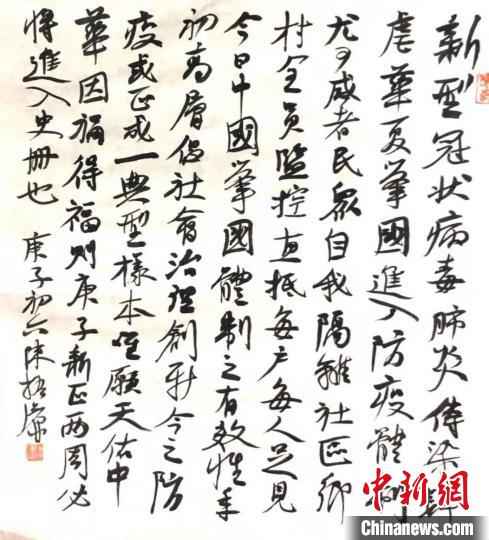 新型冠状病毒肺炎傳染
虐華夏舉國進入防疫體制
尤可感者民眾自我隔離社區鄉
村全員監控直抵每户每人足見
今日中國舉國體制之有效性年
初高層倡社會治理創新今之防
疫或正成一典型樣本唯願天佑中
華因禍得福则庚子新正两周必
將進入史册也 庚子初六陳振濂
中新网
Chinanews.com